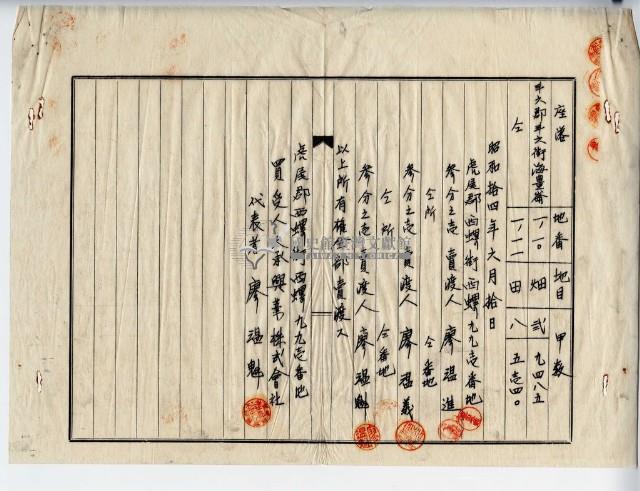 座落 地番 地目 甲數
斗六郡斗六街海豊崙 一ノ一〇 畑 貳 九四八五
仝 一ノ一一 田 八 五壱四〇
昭和拾四年六月拾日
虎尾郡西螺街西螺九九壱番地
參分之壱賣渡人 廖温進
仝所 仝番地
參分之壱賣渡人 廖温義
仝所 仝番地
參分之壱賣渡人 廖温魁
以上所有權全部賣渡ス
虎尾郡西螺街西螺九九壱番地
買受人 永興業株式會社
代表者 廖温魁
國史館臺灣文獻館
TAIWAN HISTORICA